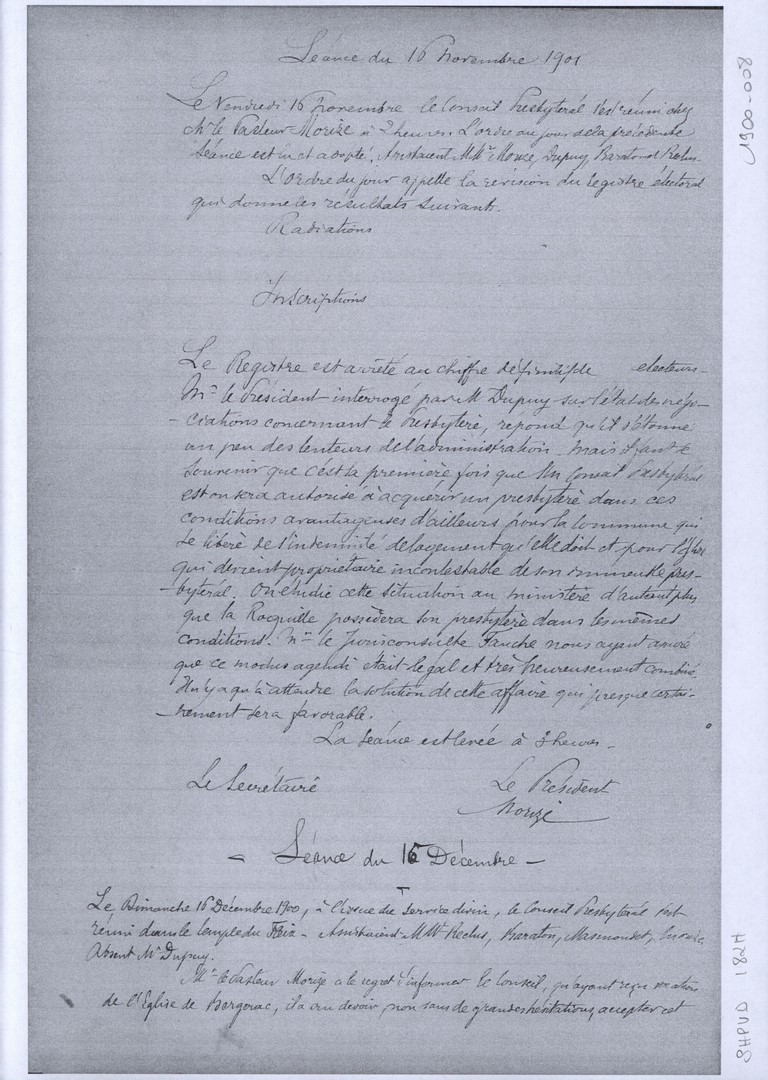 Séance du 16 Novembre 1901
Le Vendredi 16 Novembre le Conseil Presbytéral s'est réuni chez
Mr le Pasteur Morize à 2 heures. L'ordre du jour de la précédente
séance est lu et adopté. Assistaient MM. Morize, Dupuy, Baraton et Reclus.
L'ordre du jour appelle la révision du registre électoral
qui donne les résultats suivants.
Radiations
Inscriptions
Le Registre est arrêté au chiffre définitif de electeurs.
Mr le Président interrogé par M Dupuy sur l'état des négo-
-ciations concernant le Presbytère, répond qu'il s'étonne
un peu des lenteurs de l'administration. Mais il faut se
souvenir que c'est la première fois que un Conseil Presbytéral
est ou sera autorisé à acquérir un presbytère dans ces
conditions avantageuses d'ailleurs pour la Commune qui
se libère de l'indemnité de logement qu'elle doit et pour l'Eglise
qui devient propriétaire incontestable de son immeuble pres-
-bytéral. On étudie cette situation au ministère d'autant plus
que la Rocquille possèdera son presbytère dans les mêmes
conditions. Mr le Jurisconsulte Fauche nous ayant assuré
que ce modus agendi était légal et très heureusement combiné.
Il n'y a qu'à attendre la solution de cette affaire qui presque certai-
-nement sera favorable.
La séance est levée à 3 heures.
Le Secrétaire Le Président
Morize
- Séance du 16 Décembre -
Le Dimanche 16 Décembre 1900, à l'issue du service divin, le Conseil Presbytéral s'est
réuni dans le temple du Fleix - Assistaient MM Reclus, Baraton, Masmondet, Morize.
Absent Mr Dupuy.
Mr le Pasteur Morize a le regret d'informer le Conseil, qu'ayant reçu vocation
de l'Eglise de Bergerac, il a cru devoir, non sans de grandes hésitations, accepter cet
1900-008
SHPVD 182H